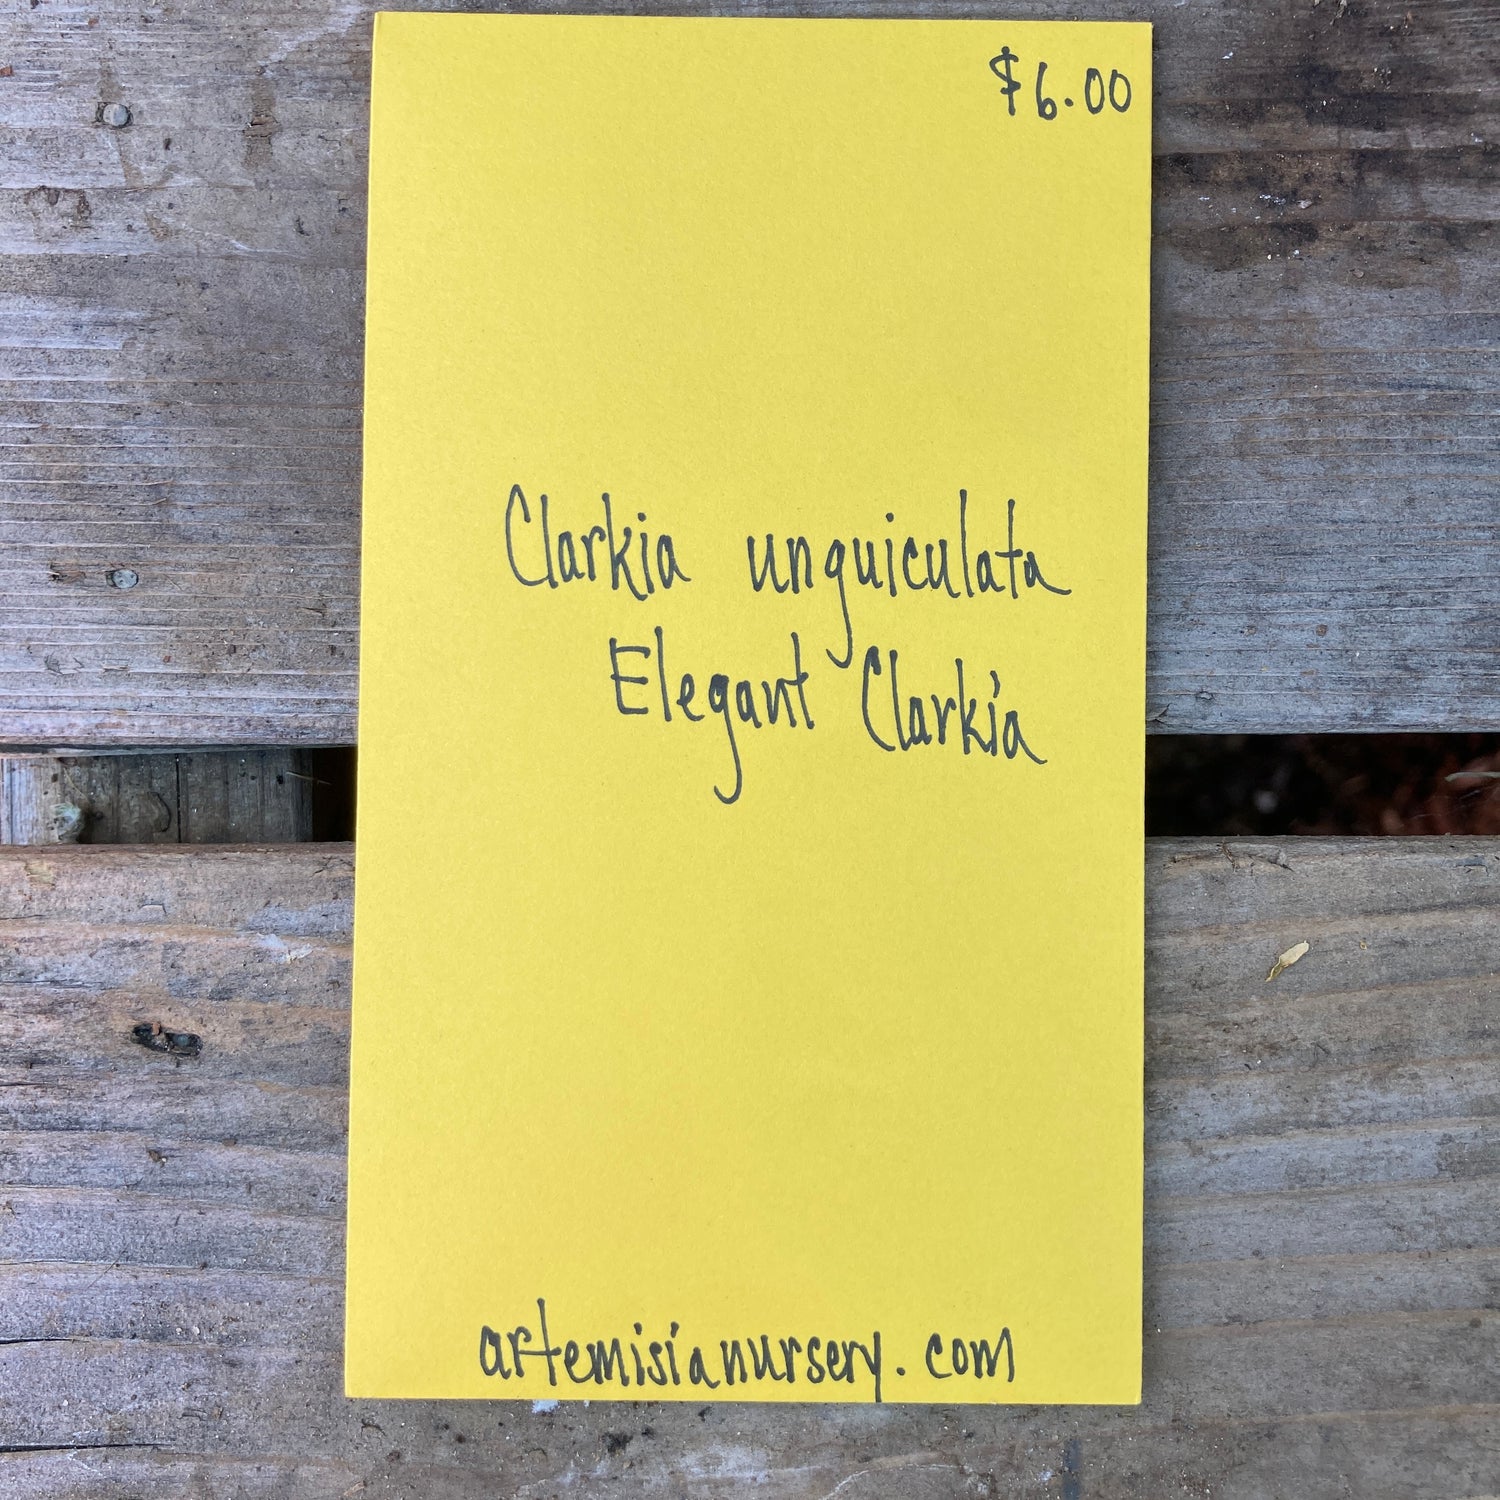 $6.00
Clarkia unguiculata
Elegant Clarkia
artemisianursery.com